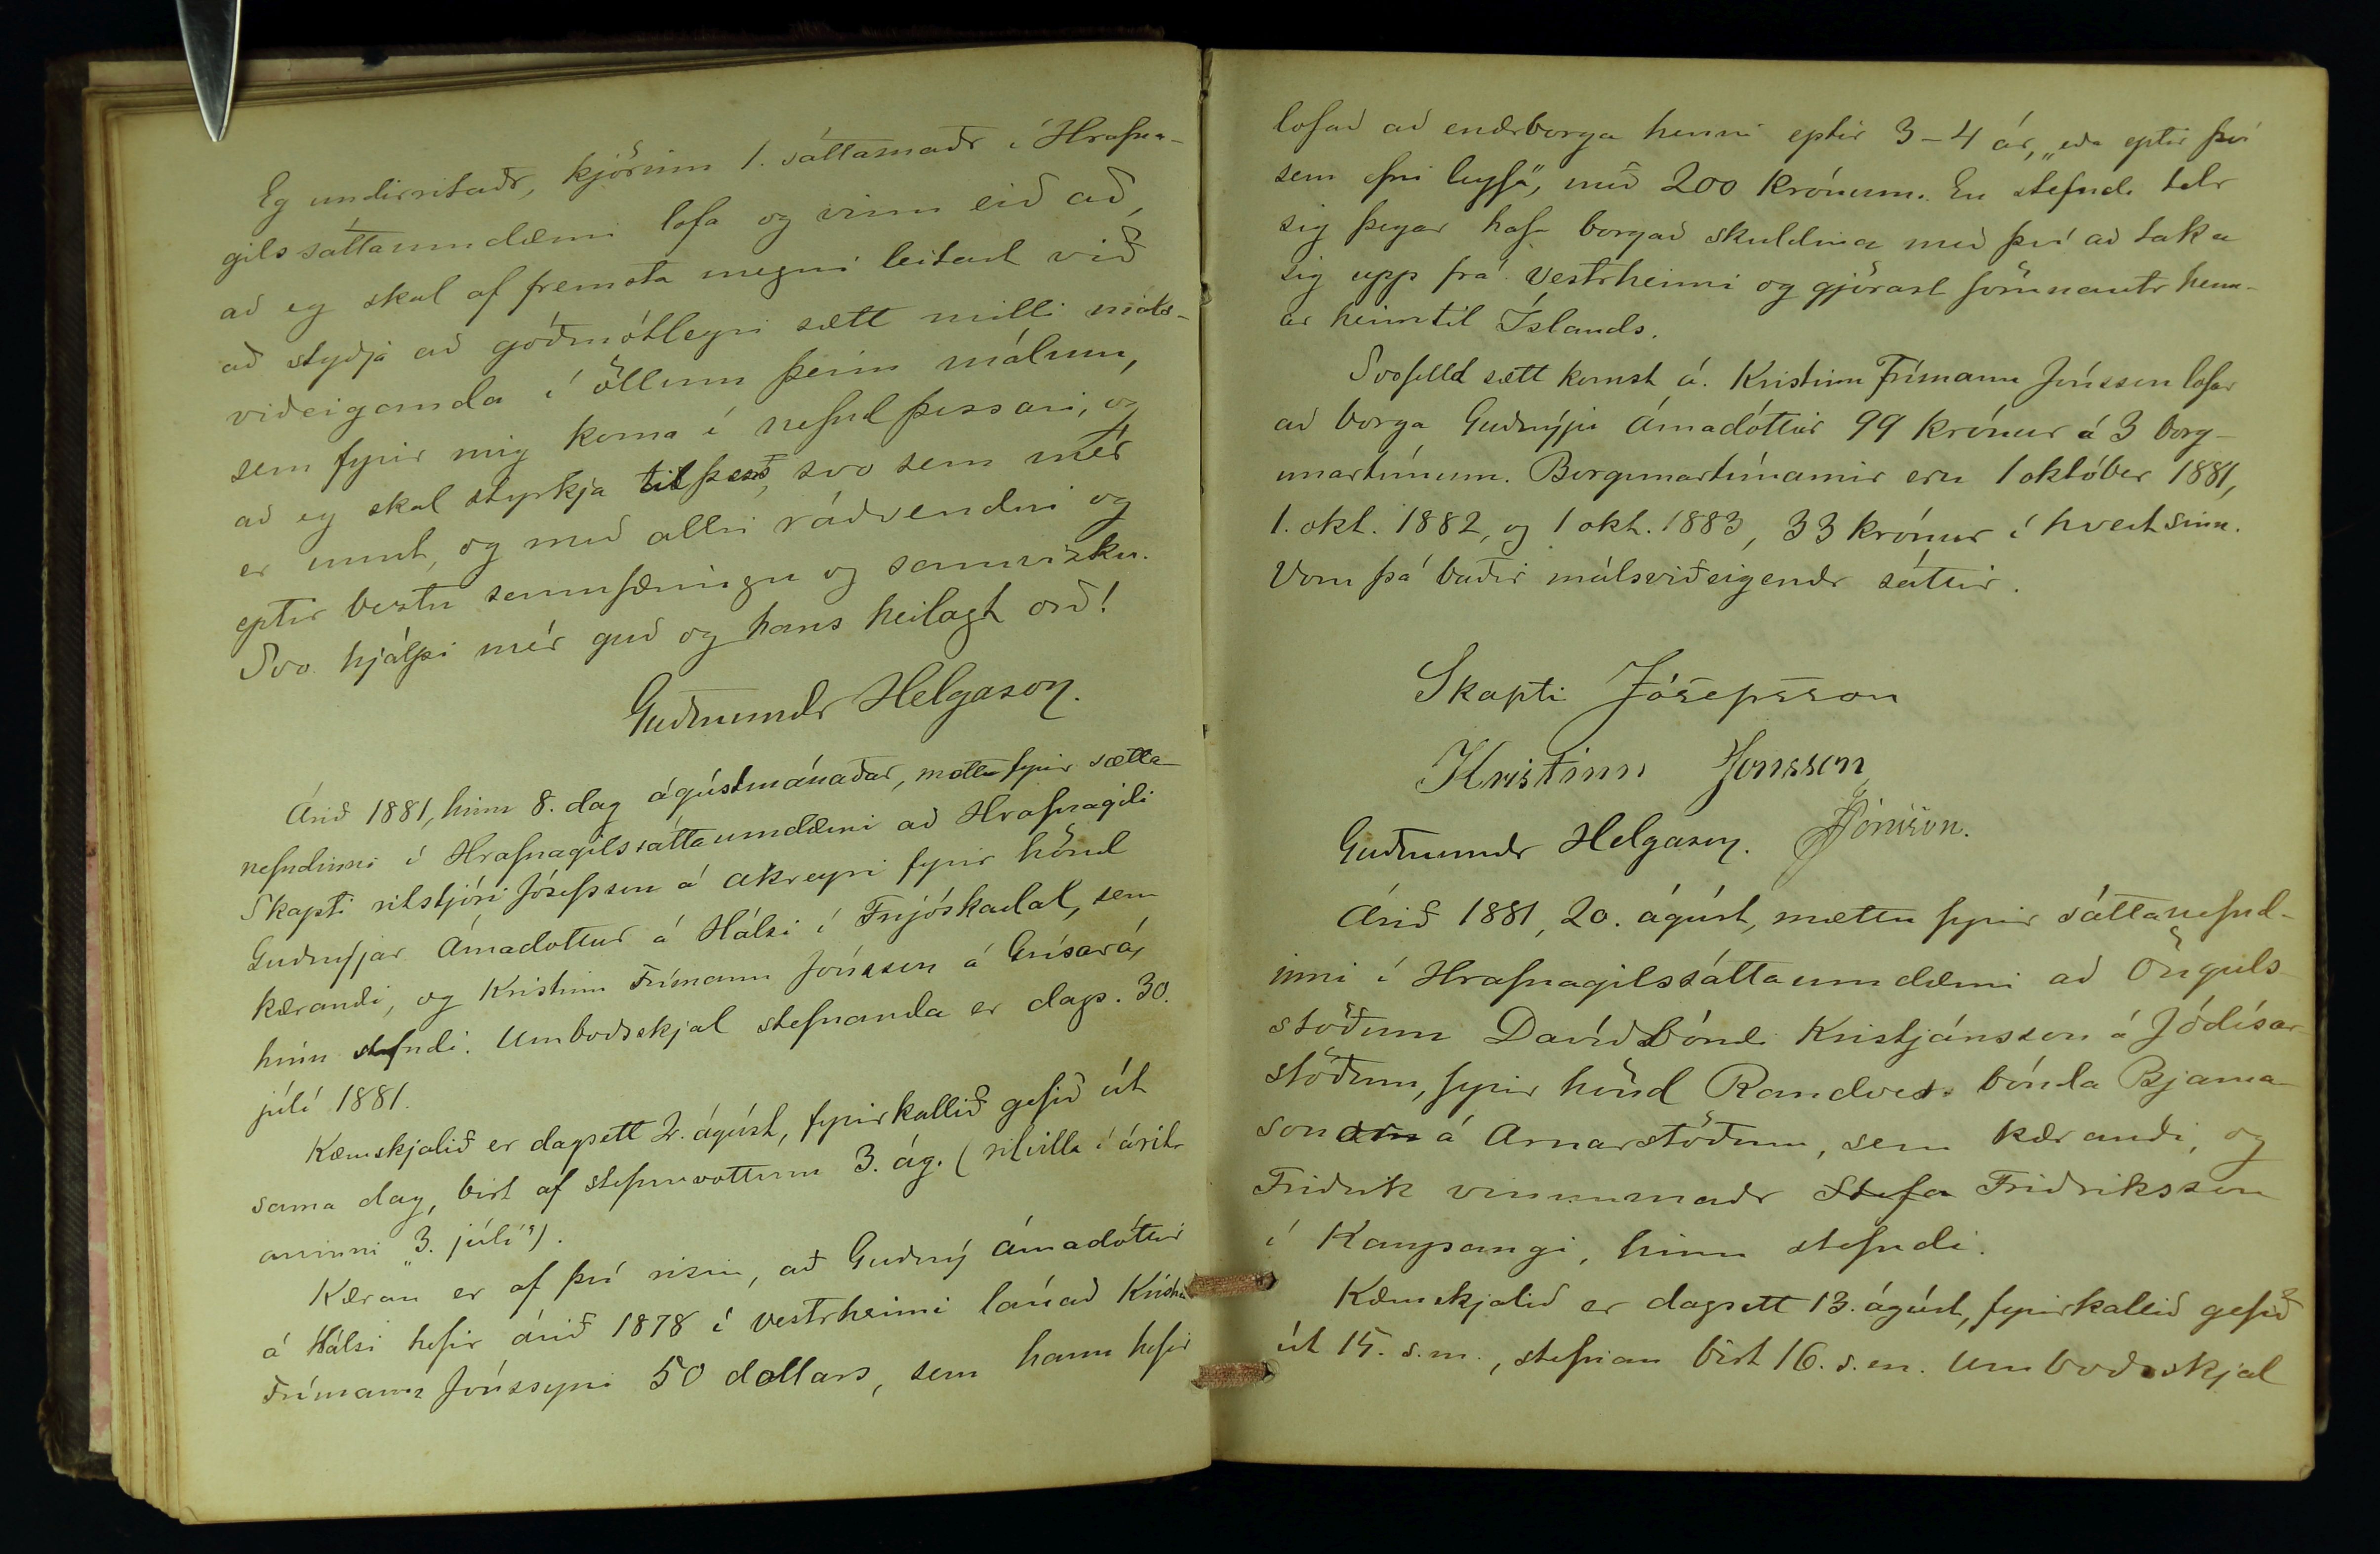 Eg undirritaðr, kjörinn 1. sáttamaðr í Hrafna-
gilssáttaumdæmi lofa og vinn eið að,
að eg skal af fremsta megni leitast við
að styðja að góðmótlegri sætt milli máls-
viðeiganda í öllum þeim málum,
sem fyrir mig koma í nefnd þessari, og
að eg skal styrkja til þess, svo sem mér
er unnt, og með allri ráðvendni og
eptir beztu sannfæringu og samvizku.
Svo hjálpi mér guð og hans heilagt orð!
Guðmundr Helgason.
Árið 1881, hinn 8. dag ágústmánaðar, mættu fyrir sátta-
nefndinni í Hrafnagilssáttaumdæmi að Hrafnagili
Skapti ritstjóri Jósefsson á Akreyri fyrir hönd
Guðnýjar Árnadóttur á Hálsi í Fnjóskadal, sem
kærandi, og Kristinn Frímann Jónsson á Grísará,
hinn stefndi. Umboðsskjal stefnanda er dags. 30.
júlí 1881.
Kæruskjalið er dagsett 2. ágúst, fyrirkallið gefið út
sama dag, birt af stefnuvottum 3. ág. (ritvilla í áritr
aninni "3. júlí").
Kæran er af því risin, að Guðný Árnadóttir
á Hálsi hefir árið 1878 í vestrheimi lánað Kristni
Frímann Jónssyni 50 dollars, sem hann hefir
lofað að endrborga henni eptir 3-4 ár, „eða eptir því
sem efni leyfa", með 200 krónum. En stefndi telr
sig þegar hafa borgað skuldina með því að taka
sig upp frá Vestrheimi og gjörast förunautr henn-
ar heim til Íslands.
Svofelld sætt komst á. Kristinn Frímann Jónsson lofar
að borga Guðnýju Árnadóttur 99 krónur á 3 borg-
unartímum. Borgunartímarnir eru 1 október 1881,
1. okt. 1882, og 1 okt. 1883, 33 krónur í hvert sinn.
Voru þá báðir málsviðeigendr sáttir.
Skapti Jósepsson
Kristinn Jonsson
Guðmundr Helgason. JJónsson.
Árið 1881, 20. ágúst, mættu fyrir sáttanefnd-
inni í Hrafnagilssáttaumdæmi að Önguls-
stöðum Davíð bóndi Kristjánsson á Jódísar-
stöðum, fyrir hönd Randvers bónda Bjarna-
sonar á Arnarstöðum, sem kærandi, og
Friðrik vinnumaðr Stefa Friðriksson
í Kaupangi, hinn stefndi.
Kæruskjalið er dagsett 13. ágúst, fyrirkallið gefið
út 15. s.m., stefnan birt 16. s.m. Umboðsskjal